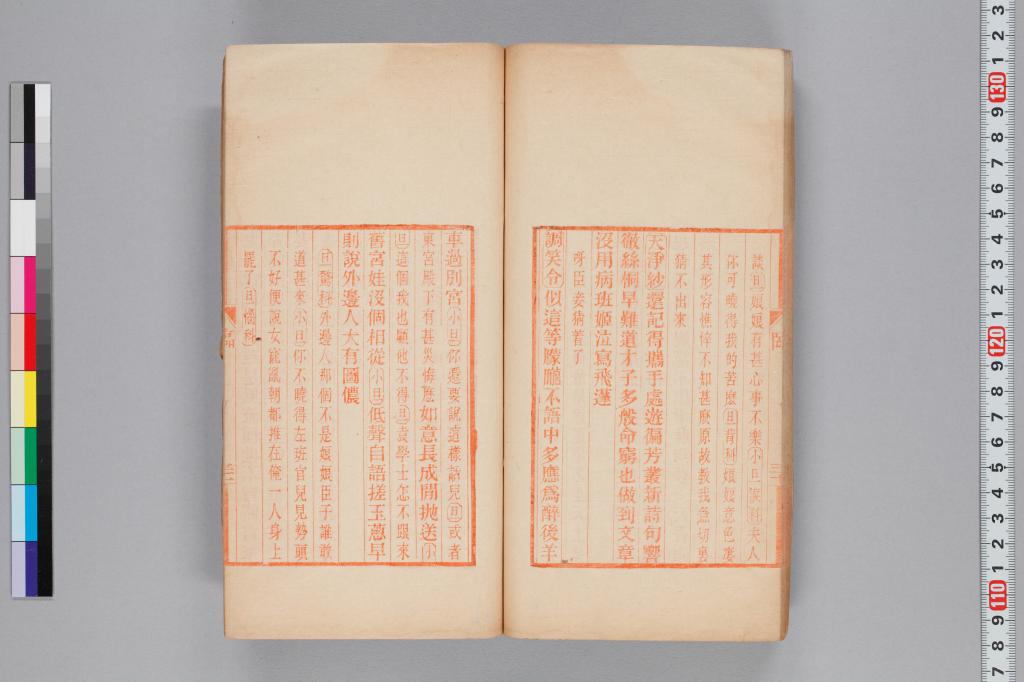 談旦娘娘有甚心事不樂小旦淚科夫人
你可曉得我的苦麼旦背科娘娘意色凄
其形容憔悴不知甚麼原故教我急切裏
猜不出來
天淨紗還記得攜手處遊徧芳叢新詩句響
徹絲桐早難道才子多般命窮也做到文章
沒用病班姬泣寫飛蓬
呀臣妾猜着了
調笑令似這等朦朧不語中多應為醉後羊
車過別宮小旦你還要說這樣話兒旦或者
東宮殿下有甚災悔應如意長成閒拋送小
旦這個我也顧他不得旦袁學士怎不跟來
舊宮娃沒個相從小旦低聲自語搓玉蔥早
則說外邊人大有圖儂
旦驚科外邊人那個不是娘娘臣子誰敢
道甚來小旦你不曉得左班官兒見勢頭
不好便說女寵亂朝都推在俺一人身上
罷了旦惱科